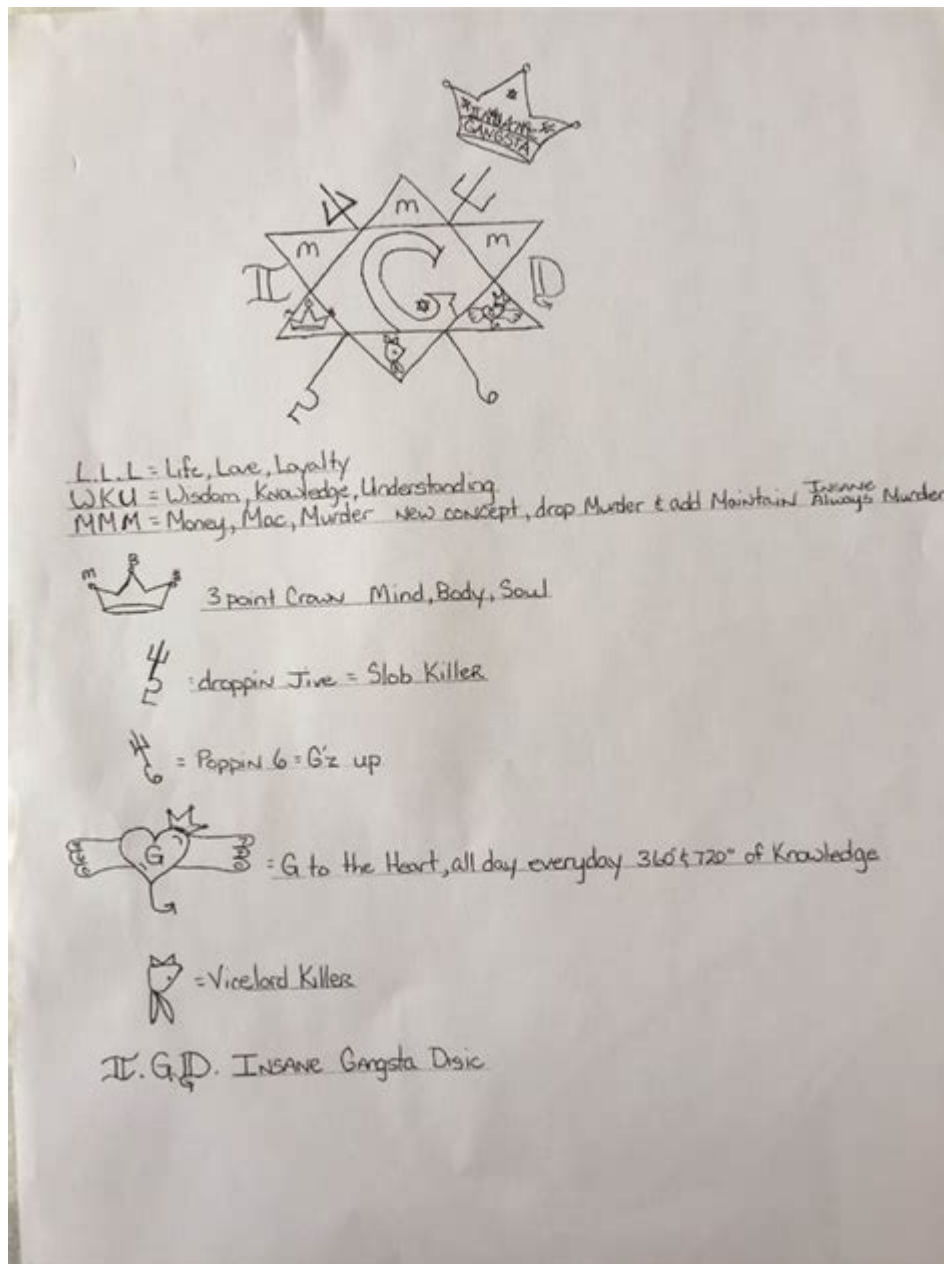 GANGSTA
m
m
m
I
G
D
L.L.L = Life, Love, Loyalty
WKU = Wisdom, Knowledge, Understanding
MMM = Money, Mac, Murder New concept, drop Murder & add Maintain Insane Always Murder
M B S
3 point Crown Mind, Body, Soul
: droppin Jive = Slob Killer
6 = Poppin 6 = G'z up
G = G to the Heart, all day everyday 360° & 720° of Knowledge
= Vicelord Killer
I.G.D. Insane Gangsta Disic